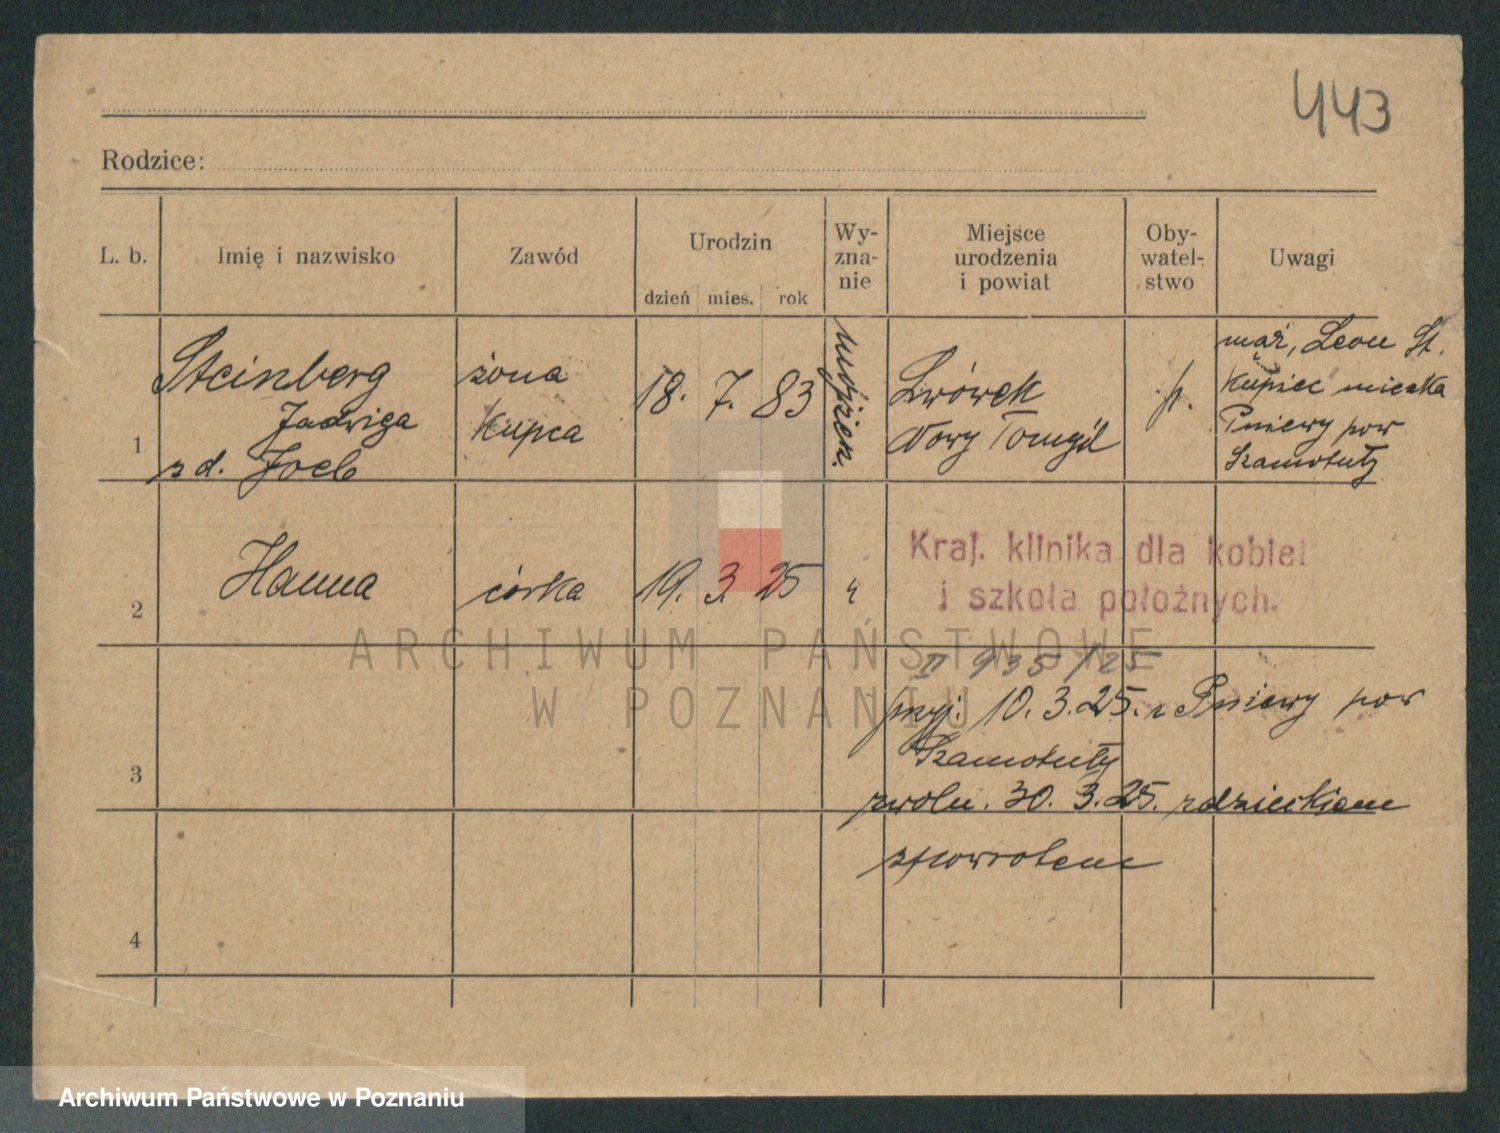 443
Rodzice:
L. b.
Imię i nazwisko
Zawód
Urodzin
dzień mies. rok
Wy-
zna-
nie
Miejsce
urodzenia
i powiat
Oby-
watel-
stwo
Uwagi
1
Steinberg
Jadwiga
z d. Joel
żona
Kupca
18. 7. 83
mojżesz.
Lwówek
Nowy Tomyśl
p.
mąż, Leon St.
Kupiec mieszka
Pniewy pow
Szamotuły
2
Hanna
córka
19. 3. 25
"
Kraj. klinika dla kobiet
i szkoła położnych.
II 935/25
3
przyj. 10. 3. 25. z Pniewy pow
Szamotuły
zwoln. 30. 3. 25. z dzieckiem
zpowrotem
4
ARCHIWUM PAŃSTWOWE
W POZNANIU
Archiwum Państwowe w Poznaniu